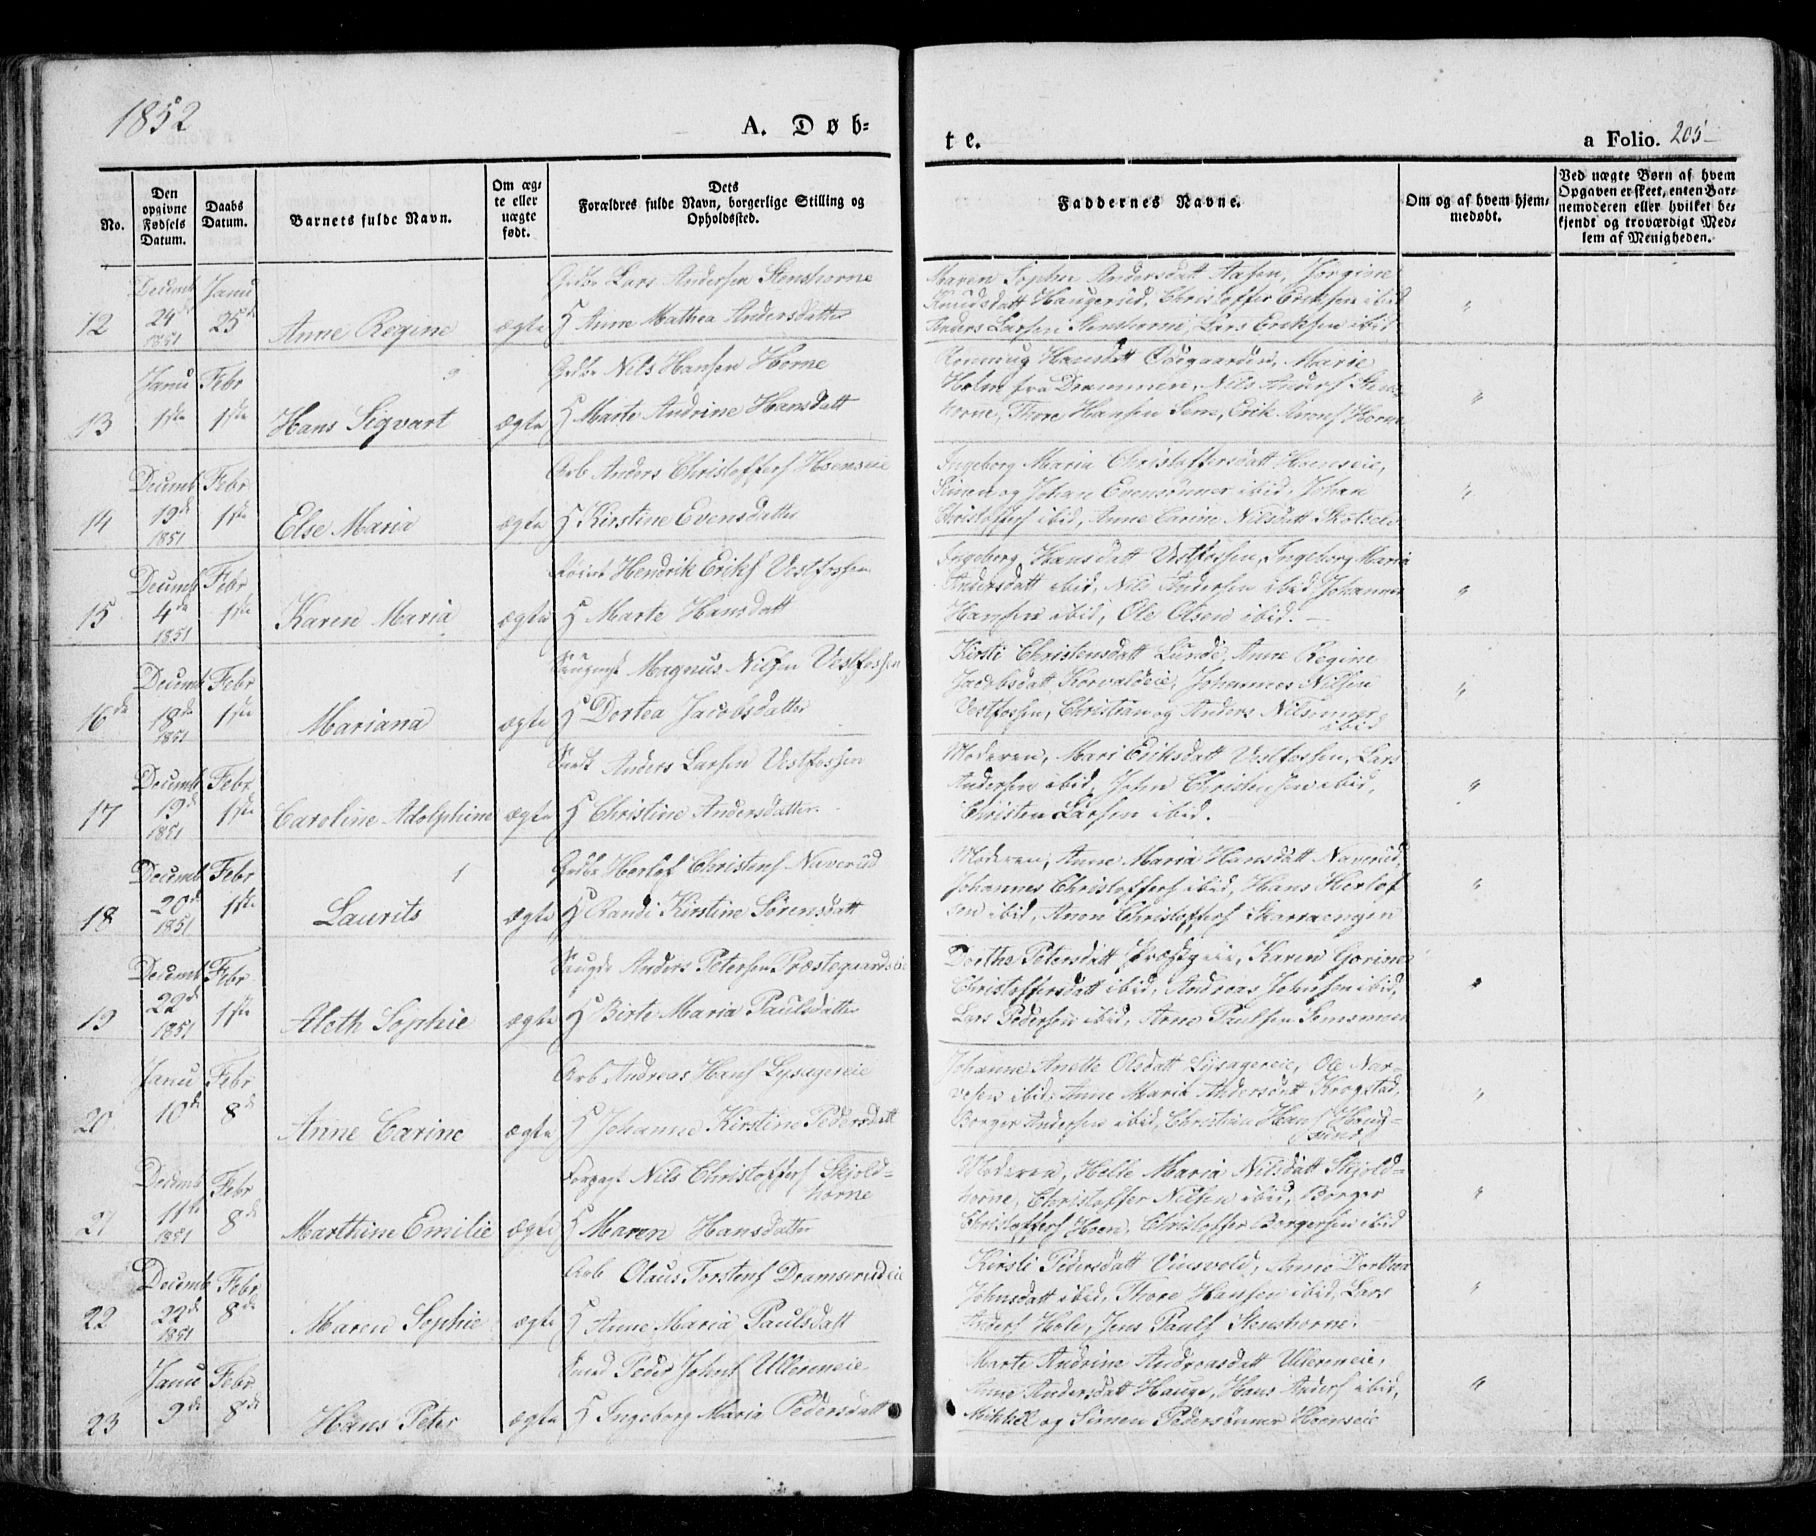 1852
A. Døb-
te.
a Folio. 205
No.
Den opgivne Fødsels Datum.
Daabs Datum.
Barnets fulde Navn.
Om ægte eller uægte født.
Dets Forældres fulde Navn, borgerlige Stilling og Opholdssted.
Faddernes Navne.
Om og af hvem hjemmedøbt.
Ved uægte Børn af hvem Opgaven er skeet, enten Barnemoderen eller hvilket bekjendt og troværdigt Medlem af Menigheden.
Decemb Janu Gdbr Lars Andersen Stenshorne Maren Sophie Andersdatt Aasen, Jørgine
12 24de 1851 25de Anne Regine ægte H Anne Mathea Andersdatter Knudsdatt Haugerud, Christoffer Eriksen ibid "
Anders Larsen Stenshorne, Lars Eriksen ibid
Janu Febr Gdbr Nils Hansen Horne Hansdatt Marie
13 1ste 1ste Hans Sigvart ægte H Marte Andrine Hansdatt Holm fra Drammen, Nils Anders Stens- "
horne, Thore Hansen Sem, Erik Horne
Decemb Febr Arb Anders Christoffers Hoenseie Ingeborg Maria Christoffersdatt Hoenseie,
14 19de 1851 1ste Else Maria ægte H Kirstine Evensdatter Simen og Johan Evensønner ibid, Johan "
Christoffers ibid, Anne Carine Nilsdatt Skotselv
Decemb Febr Hendrik Eriks Vestfossen Ingeborg Hansdatt Vestfossen, Ingeborg Maria
15 4de 1851 1ste Karen Maria ægte H Marte Hansdatt Andersdatt ibid, Nils Andersen ibid, Johannes "
Hansen ibid, Ole Olsen ibid.
Decemb Febr Magnus Nilsen Vestfossen Kirsti Christensdatt Lunde, Anne Regine
16de 18de 1851 1ste Mariana ægte H Dortea Jacobsdatter Jacobsdatt Korvaldeie, Johannes Nilsen "
Vestfossen, Christian og Anders Nilsønner ibid
Decemb Febr Anders Larsen Vestfossen Moderen, Mari Eriksdatt Vestfossen, Lars
17 19de 1851 1ste Caroline Adolphine ægte H Christine Andersdatter. Andersen ibid, John Christensen ibid, "
Christen Larsen ibid.
Decemb Febr Gdbr Herlof Christens Naverud Moderen, Anne Maria Hansdatt Naverud,
18 20de 1851 1ste Laurits ægte H Randi Kirstine Sørensdatt Johannes Christoffers ibid, Hans Herlof "
sen ibid, Anon Christoffers
Decemb Febr Anders Petersen Præstegaardseie Dorthe Petersdatt Karen Gorine
19 22de 1851 1ste Aleth Sophie ægte H Birte Maria Paulsdatter Christoffersdatt ibid, Andreas Johnsen ibid, "
Lars Pedersen ibid, Arne Paulsen
Janu Febr Arb Andreas Hans Lysagereie Johanne Anette Olsdatt Lysagereie, Ole Nar-
20 10de 8de Anne Carine ægte H Johanne Kirstine Pedersdatt vesen ibid, Anne Maria Andersdatt Krogstad, "
Borger Andersen ibid, Christian Hans Haug-
sund
Decemb Febr Forpagt Nils Christoffers Skjold- Moderen, Helle Maria Nilsdatt Skjold-
horne horne, Christoffer Nilsen ibid, Borger "
21 11te 1851 8de Marthine Emilie ægte H Maren Hansdatter Christoffers Hoen, Christoffer Borgersen ibid
Decemb Febr Arb Olaus Torstens Dramseerudeie Kirsti Pedersdatt Vinsvold, Anne Dorthea
22 22de 1851 8de Maren Sophie ægte H Anne Maria Paulsdatt Johnsdatt ibid, Thore Hansen ibid, Lars "
Anders Hole, Jens Pauls Stenshorne.
Janu Febr Peder Johns Ullerneie Marte Andrine Andreasdatt Ullerneie,
23 9de 8de Hans Peter ægte H Ingeborg Maria Pedersdatt Anne Andersdatt Hauge, Hans Anders ibid, "
Mikkel og Simen Pedersønner Hoenseie